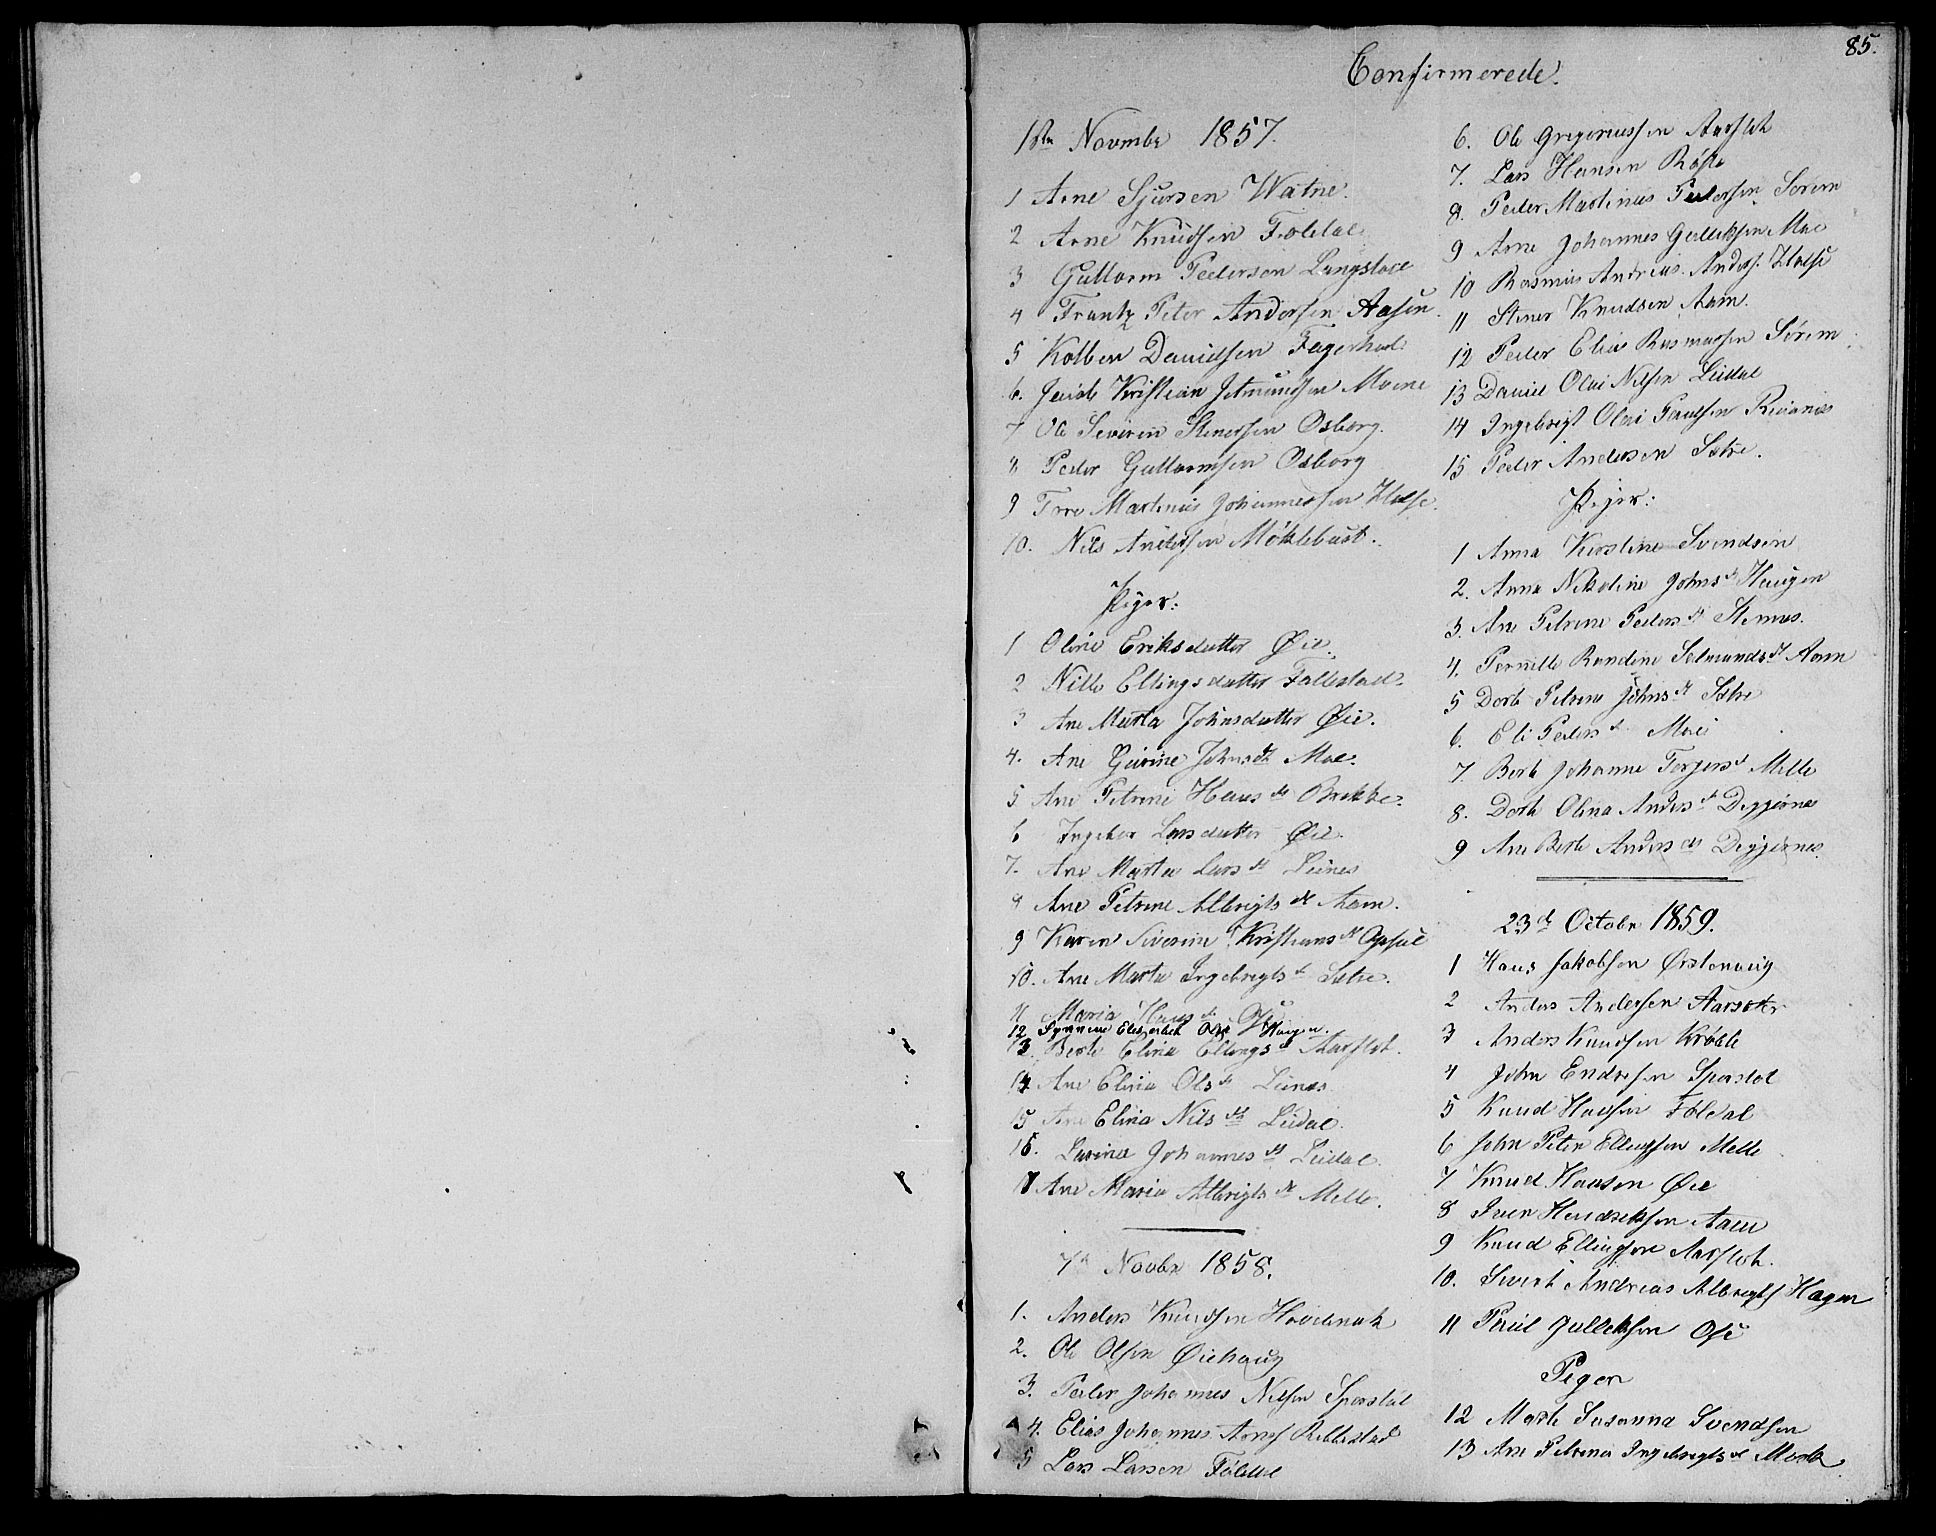 85.
Confirmerede.
1ste Novmbr 1857.
1 Arne Sjursen Watne.
2 Arne Knudsen Foldal
3 Guttorm Pedersen Langstøve
4 Frantz Peter Andersen Aasen.
5 Kolben Davidsen Fagerhol
6. Kristian Jetmundsen Moene
7 Ole Severin Stenersen Osborg.
8 Peder Guttormsen Osborg
9 Martinus Johannessen Halse.
10. Nils Andersen Møklebust.
Piger:
1 Oline Eriksdatter Øie.
2 Nille Ellingsdatter Follestad.
3 Ane Marta Johnsdatter Øie.
4. Ane Gurine Johnsdt Moe.
5. Ane Petrine Hans dt Brekke.
6 Ingebor Larsdatter Øie.
7. Ane Marta Lars dt Leines
8 Ane Petrine Albrigts dt Aam.
9 Karen Siverine Kristians dt Opsal
10. Ane Marta Ingebregts dt Sætre.
11 Maria Hans dt Ose
12 Synneve Elisabet Olsdt Haugen.
13. Berte Elina Ellings dt Aarflot.
14 Ane Elina Ols dt Leines
15 Ane Elina Nils dt Leidal.
16. Lovina Johannes dt Leidal.
17 Ane Maria Albrigts dt Melle.
7d Novbr 1858.
1. Anders Knudsen Hovdenak
2. Ole Olsen Øiehaug
3. Peder Johannes Nilsen Sporstøl
4. Elias Johannes Arnes Rebbestad
5 Lars Larsen Foldal
6. Ole Gregoriussen Aarflot
7. Lars Hansen Røste
8. Peder Martinus Pedersen Sørem
9 Arne Johannes Gulleksen Moe
10 Rasmus Andreas Anders. Halse
11 Stener Knudsen Aam.
12 Peder Elias Rasmussen Sørem
13 Daniel Olai Nilsen Leidal
14 Ingebrigt Olai Paulsen
15 Peder Andersen Sætre.
Piger:
1 Anna Kirstine Svendsen
2. Anna Nikoline Johns dt Haugen
3. Ane Petrine Peders dt Stennes.
4. Pernille Randine Salmunds dt Aam
5 Dorte Petrina Johns dt Sætre
6. Eli Peders dt Moe
7. Berte Johanne Torgers dt Melle
8. Dorte Olina Anders dt Digjernes
9 Ane Berte Anders dt Digjernes.
23de Octobr 1859.
1 Hans Jakobsen Ørstenvig
2 Anders Andersen Aarsæter
3 Anders Knudsen Krøvle
4 John Endresen Sporstøl
5 Knud Hansen Foldal
6 John Peter Ellingsen Melle
7 Knud Hansen Øie
8 Iver Hendriksen Aam
9 Knud Ellingsen Aarflot.
10. Sivert Andreas Albregts Hagen
11 Paul Gulleksen Ose
Piger
12 Marte Susanna Svendsen
13 Ane Petrina Ingebregts dt Mork